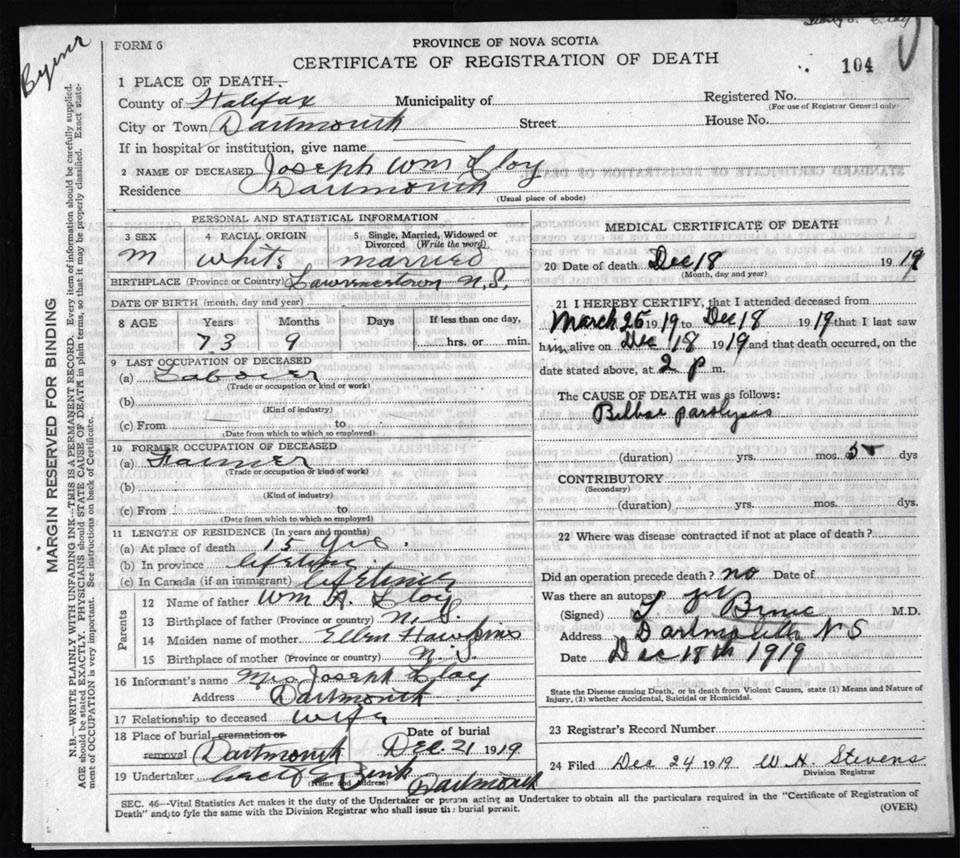 Byenr
FORM 6
PROVINCE OF NOVA SCOTIA
CERTIFICATE OF REGISTRATION OF DEATH
104
1 PLACE OF DEATH
County of Halifax Municipality of Registered No.
(For use of Registrar General only)
City or Town Dartmouth Street House No.
If in hospital or institution, give name
2 NAME OF DECEASED Joseph Wm Lloy
Residence Dartmouth
(Usual place of abode)
PERSONAL AND STATISTICAL INFORMATION
3 SEX 4 RACIAL ORIGIN 5 Single, Married, Widowed or Divorced (Write the word)
m white married
BIRTHPLACE (Province or Country) Lawrencetown N.S.
DATE OF BIRTH (month, day and year)
8 AGE Years Months Days If less than one day,
73 9 hrs. or min.
9 LAST OCCUPATION OF DECEASED
(a) Laborer
(Trade or occupation or kind of work)
(b)
(Kind of industry)
(c) From to
(Date from which to which so employed)
10 FORMER OCCUPATION OF DECEASED
(a) Farmer
(Trade or occupation or kind of work)
(b)
(Kind of industry)
(c) From to
(Date from which to which so employed)
11 LENGTH OF RESIDENCE (In years and months)
(a) At place of death 15 yrs.
(b) In province lifetime
(c) In Canada (if an immigrant) lifetime
Parents
12 Name of father Wm A. Lloy
13 Birthplace of father (Province or country) N.S.
14 Maiden name of mother Ellen Hawkins
15 Birthplace of mother (Province or country) N.S.
16 Informant's name Mrs Joseph Lloy
Address Dartmouth
17 Relationship to deceased wife
18 Place of burial cremation or removal Dartmouth Date of burial Dec. 21 1919
19 Undertaker Dartmouth
(Name and Address)
MEDICAL CERTIFICATE OF DEATH
20 Date of death Dec 18 1919
(Month, day and year)
21 I HEREBY CERTIFY, that I attended deceased from
March 25 1919 to Dec 18 1919 that I last saw
him alive on Dec 18 1919 and that death occurred, on the
date stated above, at 2 p m.
The CAUSE OF DEATH was as follows:
Bulbar paralysis
(duration) yrs. mos. days
CONTRIBUTORY
(Secondary)
(duration) yrs. mos. dys.
22 Where was disease contracted if not at place of death?
Did an operation precede death? no Date of
Was there an autopsy
(Signed) M.D.
Address Dartmouth N S
Date Dec 18th 1919
State the Disease causing Death, or in death from Violent Causes, state (1) Means and Nature of Injury, (2) whether Accidental, Suicidal or Homicidal.
23 Registrar's Record Number
24 Filed Dec 24 1919 W. H. Stevens
Division Registrar
SEC. 46—Vital Statistics Act makes it the duty of the Undertaker or person acting as Undertaker to obtain all the particulars required in the "Certificate of Registration of
Death" and to fyle the same with the Division Registrar who shall issue the burial permit. (OVER)
MARGIN RESERVED FOR BINDING
N.B.—WRITE PLAINLY WITH UNFADING INK—THIS IS A PERMANENT RECORD. Every item of information should be carefully supplied.
AGE should be stated EXACTLY. PHYSICIANS should STATE CAUSE OF DEATH in plain terms, so that it may be properly classified. Exact state-
ment of OCCUPATION is very important. See instructions on back of Certificate.